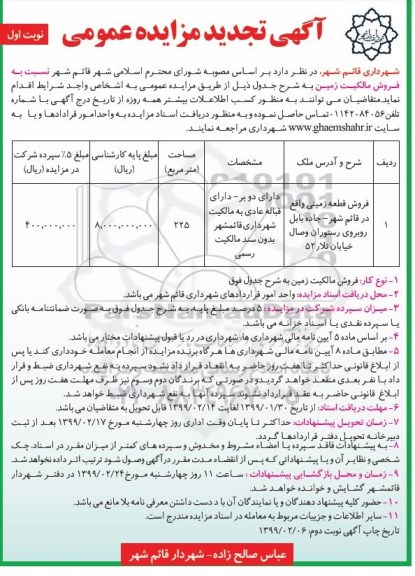 آگهی تجدید مزایده عمومی
نوبت اول
شهرداری قائم شهر، در نظر دارد بر اساس مصوبه شورای محترم اسلامی شهر قائم شهر نسبت به
فروش مالکیت زمین به شرح جدول ذیل از طریق مزایده عمومی به اشخاص واجد شرایط اقدام
نماید. متقاضیان می توانند به منظور کسب اطلاعات بیشتر همه روزه از تاریخ درج آگهی با شماره
تلفن ۰۱۱۴۲۰۸۴۰۵۶ تماس حاصل نموده و به منظور دریافت اسناد مزایده به واحد امور قراردادها و یا به
سایت www.ghaemshahr.ir شهرداری مراجعه نمایند.
ردیف
شرح و آدرس ملک
مشخصات
مساحت (متر مربع)
مبلغ پایه کارشناسی (ریال)
مبلغ ۵٪ سپرده شرکت در مزایده (ریال)
۱
فروش قطعه زمینی واقع
در قائم شهر - جاده بابل
روبروی رستوران وصال
خیابان تلار ۵۲
دارای دو بر - دارای
قباله عادی به مالکیت
شهرداری قائمشهر
بدون سند مالکیت
رسمی
۲۲۵
۸,۰۰۰,۰۰۰,۰۰۰
۴۰۰,۰۰۰,۰۰۰
۱- نوع کار: فروش مالکیت زمین به شرح جدول فوق
۲- محل دریافت اسناد مزایده: واحد امور قراردادهای شهرداری قائم شهر می باشد.
۳- میزان سپرده شرکت در مزایده: ۵ درصد مبلغ پایه به شرح جدول فوق به صورت ضمانتنامه بانکی
یا سپرده نقدی یا اسناد خزانه می باشد.
۴- بر اساس ماده ۵ آیین نامه مالی شهرداری ها، شهرداری در رد یا قبول پیشنهادات مختار می باشد.
۵- مطابق ماده ۸ آیین نامه مالی شهرداری ها هرگاه برنده مزایده از انجام معامله خودداری کند یا پس
از ابلاغ قانونی حداکثر تا هفت روز حاضر به انعقاد قرارداد نشود سپرده به نفع شهرداری ضبط و قرار
داد با نفر بعدی منعقد خواهد گردید و در صورتی که برندگان دوم و سوم نیز ظرف مهلت هفت روز پس از
ابلاغ قانونی حاضر به عقد قرارداد نشوند، سپرده آنها به نفع شهرداری ضبط خواهد شد.
۶- مهلت دریافت اسناد: از تاریخ ۱۳۹۹/۰۱/۳۰ لغایت ۱۳۹۹/۰۲/۱۴ قابل تحویل به متقاضیان می باشد.
۷- مهلت تحویل پیشنهادات: حداکثر تا پایان وقت اداری روز چهارشنبه مورخ ۱۳۹۹/۰۲/۱۷ بعد از ثبت
دبیرخانه تحویل دفتر قراردادها گردد.
۸- به پیشنهادات فاقد سپرده یا امضاء مشروط و مخدوش و سپرده های کمتر از میزان مقرر در اسناد، چک
شخصی و نظایر آن و یا پیشنهاداتی که پس از انقضاء مدت مقرر در آگهی وصول شود ترتیب اثر داده نخواهد شد.
۹- زمان و محل بازگشایی پیشنهادات: ساعت ۱۱ روز چهارشنبه مورخ ۱۳۹۹/۰۲/۲۴ در دفتر شهردار
قائمشهر گشایش و خوانده خواهد شد
۱۰- حضور کلیه پیشنهاد دهندگان و یا نمایندگان آن با در دست داشتن معرفی نامه بلا مانع می باشد.
۱۱- سایر اطلاعات و جزییات مربوط به معامله در اسناد مزایده مندرج است.
تاریخ چاپ آگهی نوبت دوم: ۱۳۹۹/۰۲/۰۶
عباس صالح زاده - شهردار قائم شهر